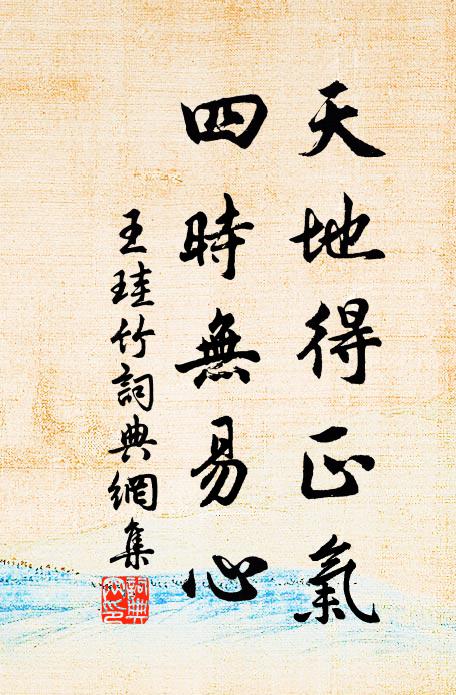 天地得正氣
四時無易心
王珪竹詞典網集